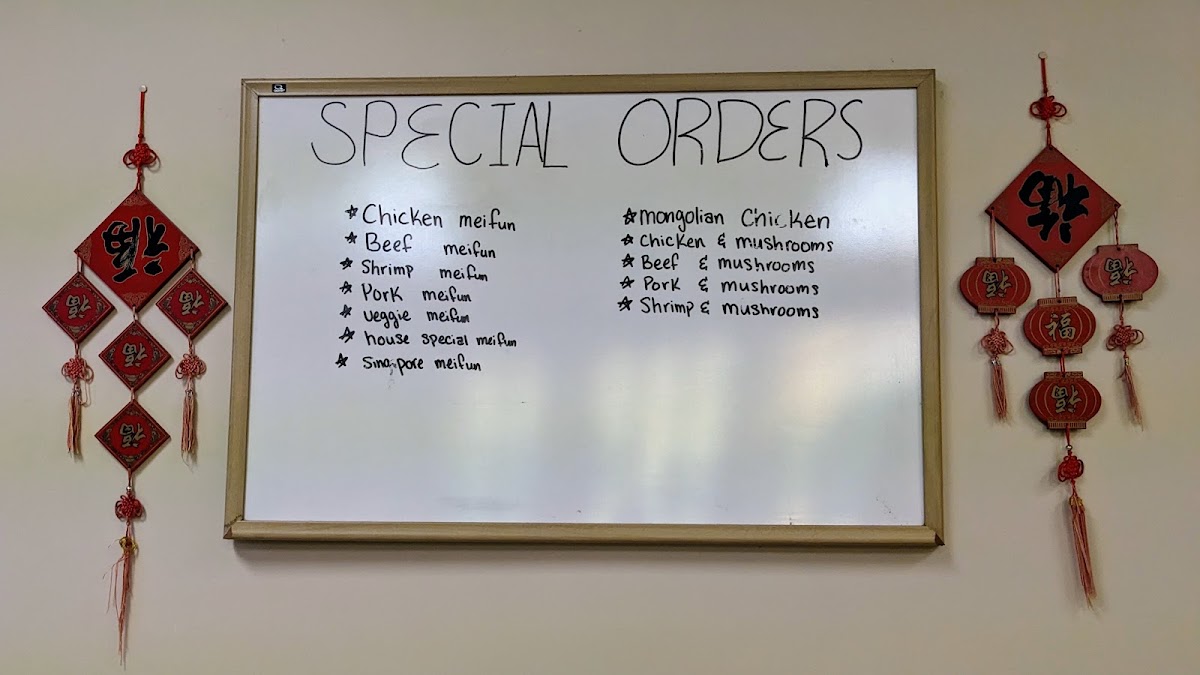 SPECIAL ORDERS
☆ Chicken meifun
☆ Beef meifun
☆ Shrimp meifun
☆ Pork meifun
☆ veggie meifun
☆ house special meifun
☆ Singapore meifun
☆ mongolian Chicken
☆ Chicken & mushrooms
☆ Beef & mushrooms
☆ Pork & mushrooms
☆ Shrimp & mushrooms
福
福
福
福
福
福
福
福
福
福
福